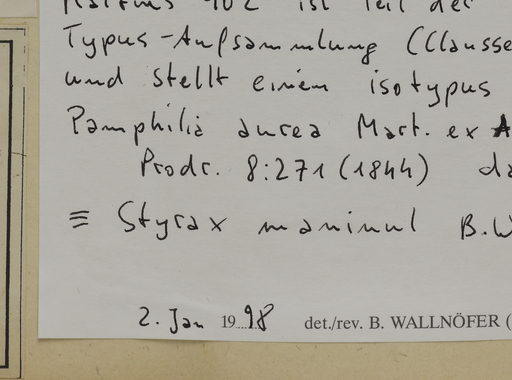 402 ist Teil der
Typus-Aufsammlung (Clausse
und stellt einen isotypus
Pamphilia aurea Mart. ex A
Prodr. 8:271 (1844) da
≡ Styrax maninul B.W
2. Jan 1998 det./rev. B. WALLNÖFER (